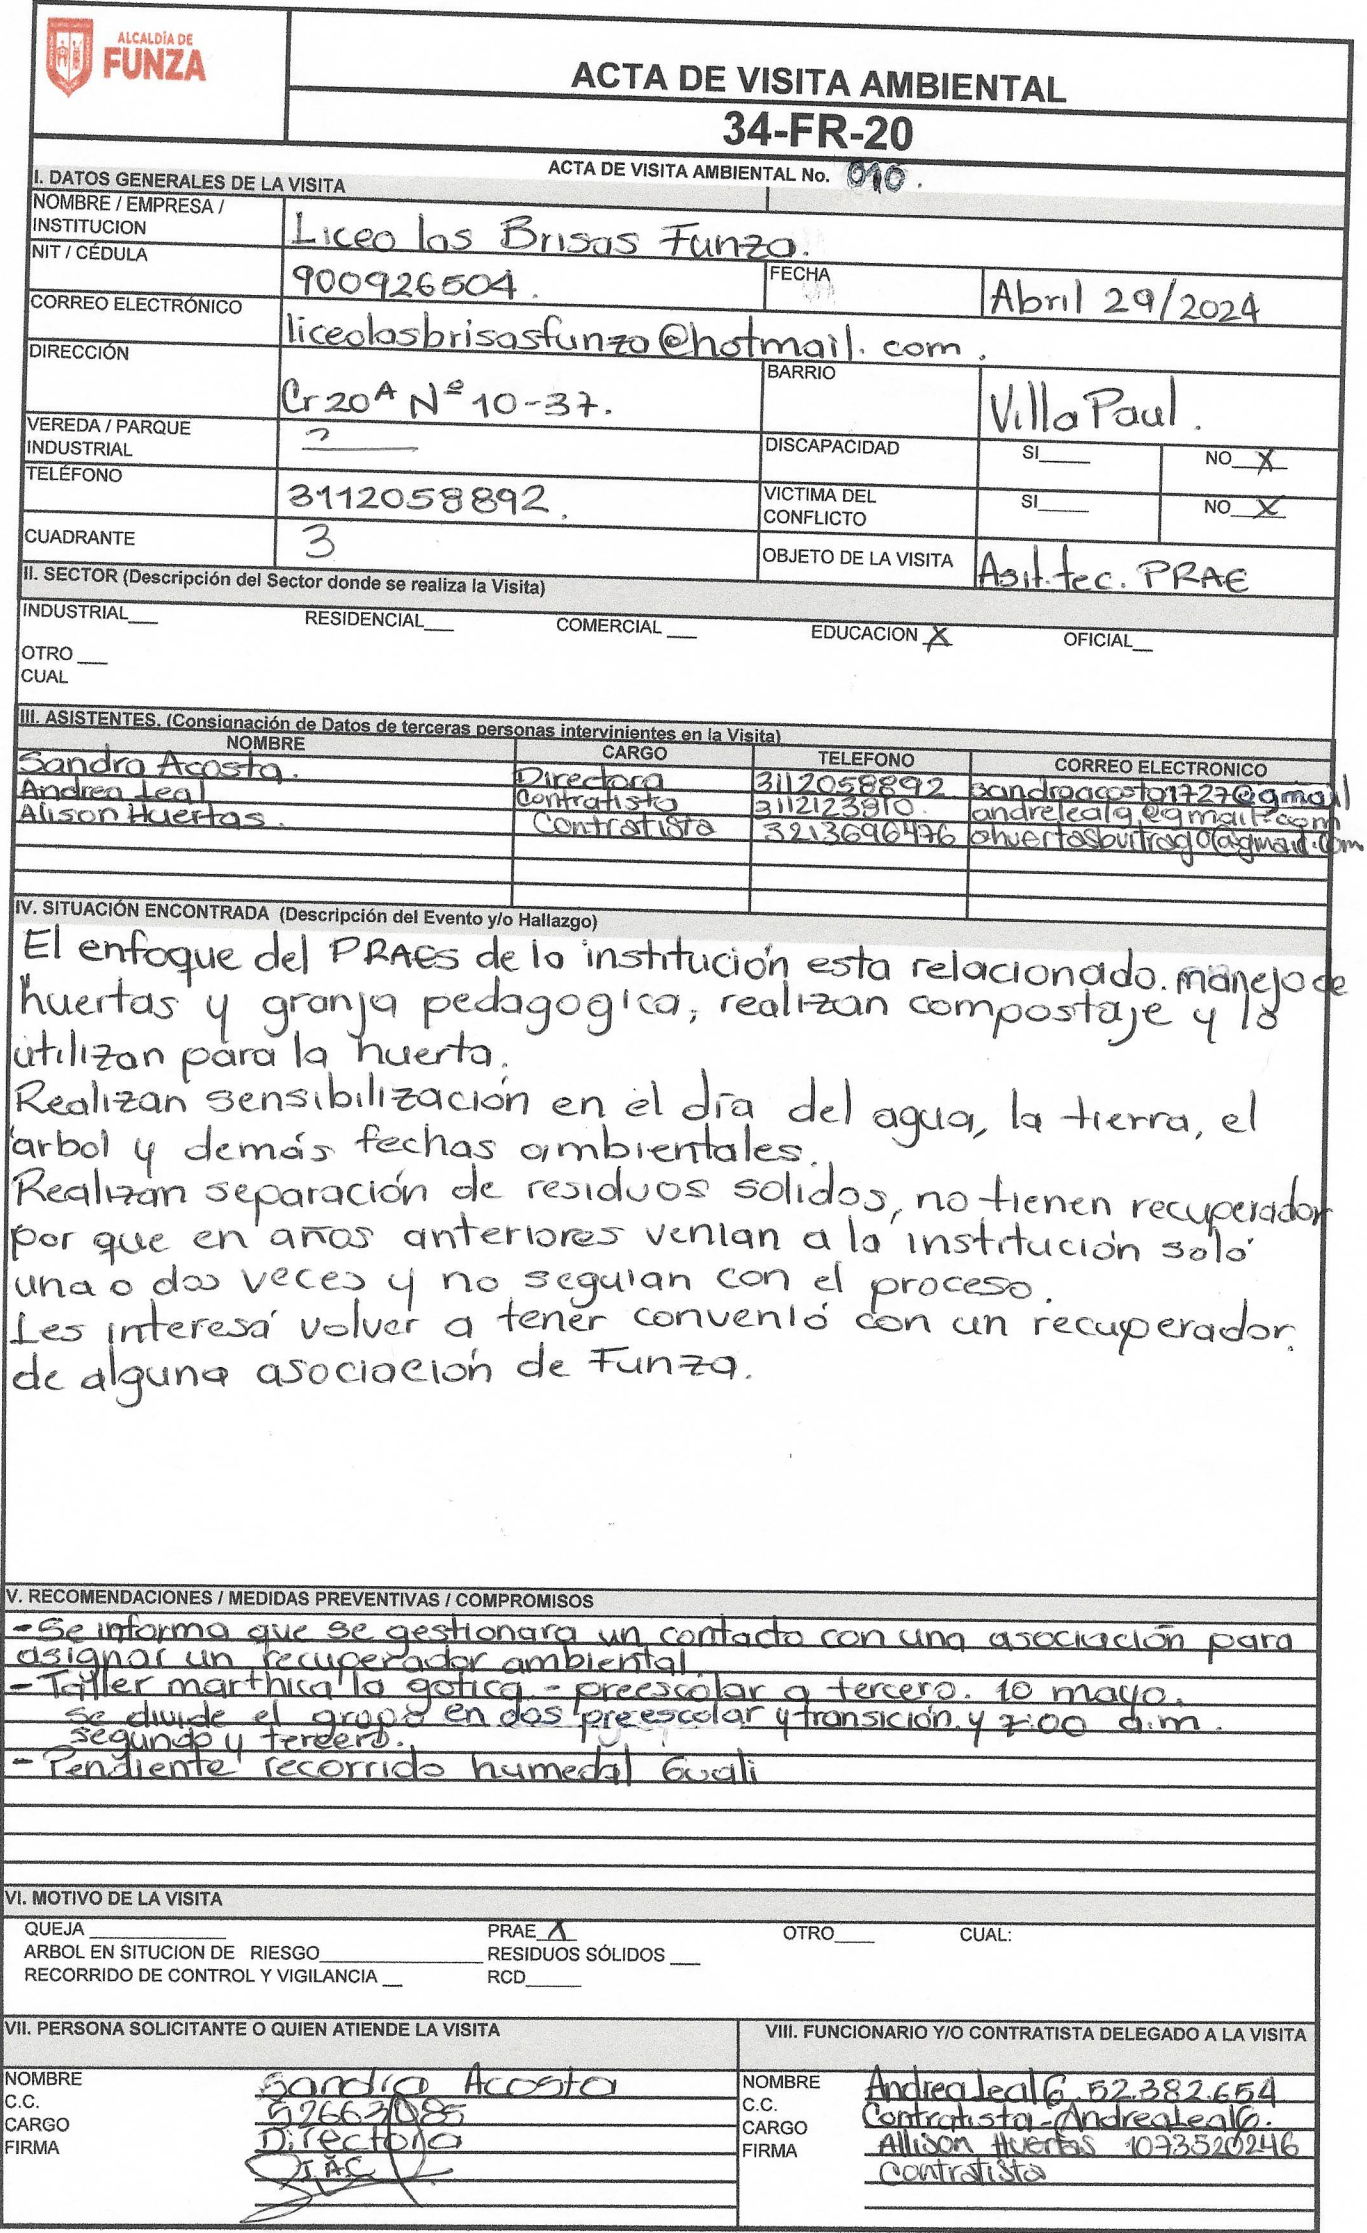 ALCALDÍA DE
FUNZA
ACTA DE VISITA AMBIENTAL
34-FR-20
ACTA DE VISITA AMBIENTAL No. 010.
I. DATOS GENERALES DE LA VISITA
NOMBRE / EMPRESA /
INSTITUCION
Liceo las Brisas Funza.
NIT / CÉDULA
900926504.
FECHA
Abril 29/2024
CORREO ELECTRÓNICO
liceolasbrisasfunza@hotmail.com.
DIRECCIÓN
Cr 20A Nº 10-37.
BARRIO
Villa Paul.
VEREDA / PARQUE
INDUSTRIAL
DISCAPACIDAD SI____ NO X
TELÉFONO
3112058892.
VICTIMA DEL
CONFLICTO
SI____ NO X
CUADRANTE
3
OBJETO DE LA VISITA
Asit.tec. PRAE
II. SECTOR (Descripción del Sector donde se realiza la Visita)
INDUSTRIAL___ RESIDENCIAL___ COMERCIAL ___ EDUCACION X OFICIAL__
OTRO ___
CUAL
III. ASISTENTES. (Consignación de Datos de terceras personas intervinientes en la Visita)
NOMBRE CARGO TELEFONO CORREO ELECTRONICO
Sandra Acosta. Directora 3112058892 sandraacosta1727@gmail
Andrea Leal Contratista 3112123910. andrelealg@gmail.com
Alison Huertas. Contratista 3213696476 ahuertasbuitrago@gmail.com
IV. SITUACIÓN ENCONTRADA (Descripción del Evento y/o Hallazgo)
El enfoque del PRAES de la institución esta relacionado. manejo de
huertas y granja pedagogica, realizan compostaje y lo
utilizan para la huerta.
Realizan sensibilización en el día del agua, la tierra, el
arbol y demás fechas ambientales.
Realizan separación de residuos solidos, no tienen recuperador
por que en años anteriores venian a la institución solo
una o dos veces y no seguian con el proceso.
Les interesa volver a tener convenió con un recuperador.
de alguna asociación de Funza.
V. RECOMENDACIONES / MEDIDAS PREVENTIVAS / COMPROMISOS
- Se informa que se gestionara un contacto con una asociación para
asignar un recuperador ambiental.
- Taller marthica la gotica - preescolar a tercero. 10 mayo.
se divide el grupo en dos preescolar y transición y 7:00 a.m.
segundo y tercero.
- Pendiente recorrido humedal Guali
VI. MOTIVO DE LA VISITA
QUEJA ______________ PRAE X OTRO____ CUAL:
ARBOL EN SITUCION DE RIESGO________________ RESIDUOS SÓLIDOS ___
RECORRIDO DE CONTROL Y VIGILANCIA __ RCD______
VII. PERSONA SOLICITANTE O QUIEN ATIENDE LA VISITA
VIII. FUNCIONARIO Y/O CONTRATISTA DELEGADO A LA VISITA
NOMBRE Sandra Acosta
C.C. 52663085
CARGO Directora
FIRMA
NOMBRE Andrea Leal G. 52.382.654
C.C. Contratista - Andrea Leal G.
CARGO Allison Huertas 1073520246
FIRMA Contratista